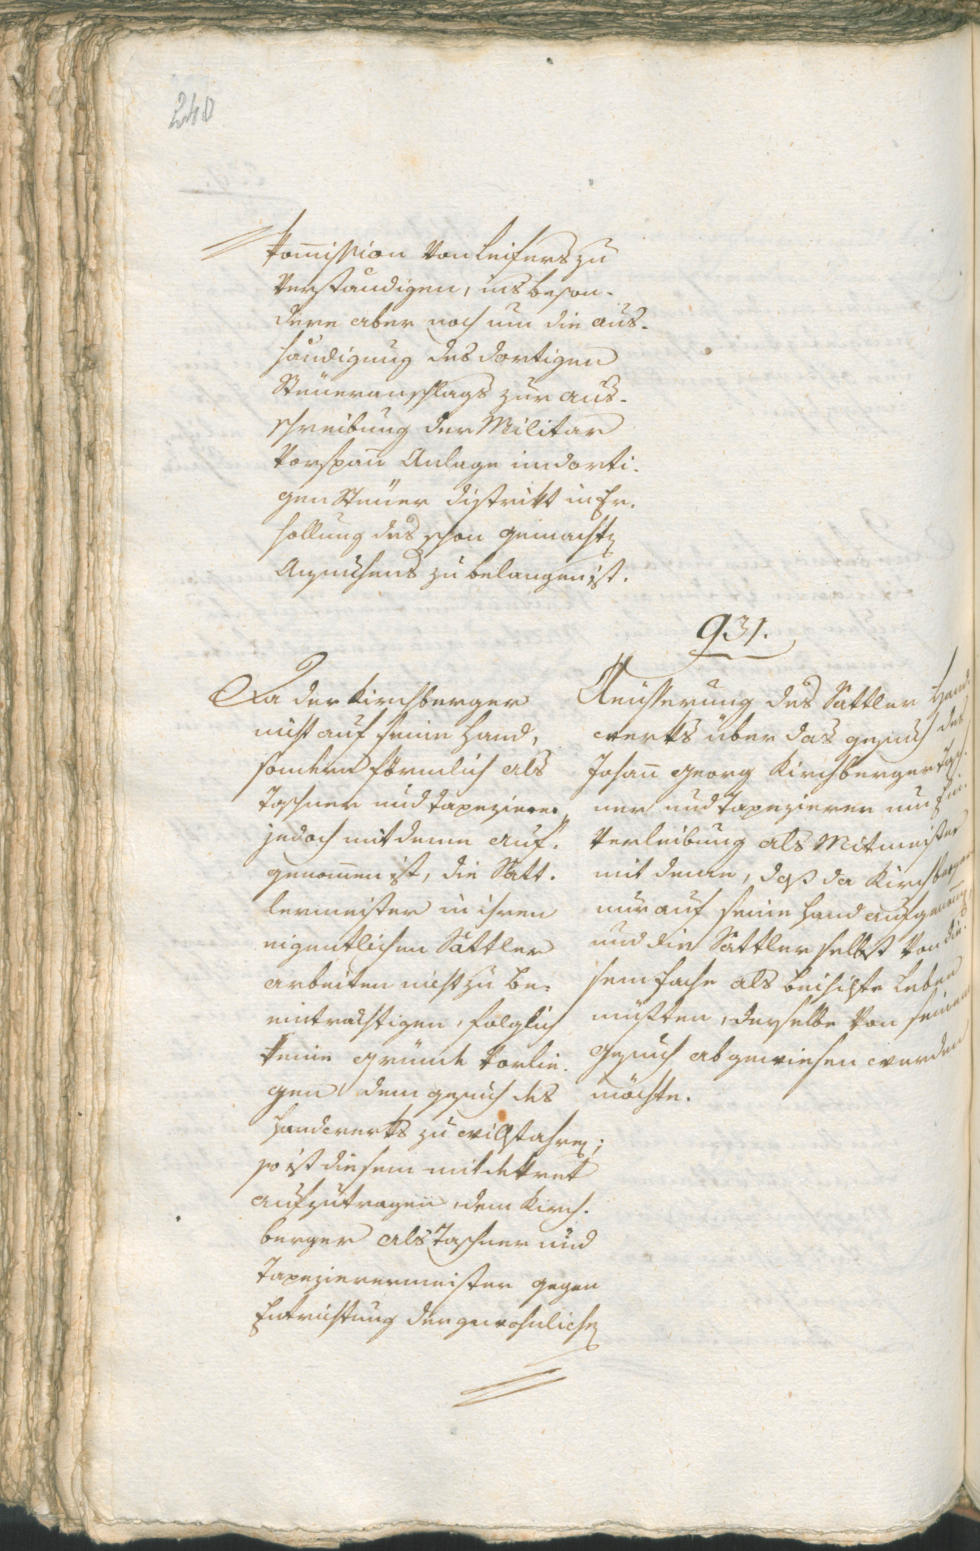 240
Komission von Leifers zu
verständigen, insbeson¬
dere aber noch um die Aus¬
händigung des dortigen
Steueranschlags zur Aus¬
schreibung der Militar
Vorspann Anlage im dorti¬
gen Steuer district in Er¬
hollung des schon gemachten
Ansuchens zu belangen ist.
931.
Da der Kirchberger
nicht auf seine Hand,
sondern förmlich als
Taschner und Tapezierer
jedoch mit deme auf¬
genommen ist, die Satt¬
lermeister in ihren
eigentlichen Sattler
arbeiten nicht zu be¬
einträchtigen, folglich
keine Gründe vorlie¬
gen dem Gesuch des
Handwerks zu willfahren;
so ist diesem mit dekret
aufzutragen, dem Kirch¬
berger als Taschner und
Tapezierermeister gegen
Entrichtung der gewöhnlichen
Aeusserung des Sattler Hand¬
werks über das Gesuch des
Johann Georg Kirchberger Tasch¬
ner und Tapezierer um Ein¬
verleibung als Mitmeister
mit deme, daß da Kirchberger
nur auf seine Hand aufgenommen
und die Sattler selbst von die¬
sem Fache als Beihilfe Leben
müßten, derselbe von seinem
Gesuch abgewiesen werden
möchte.